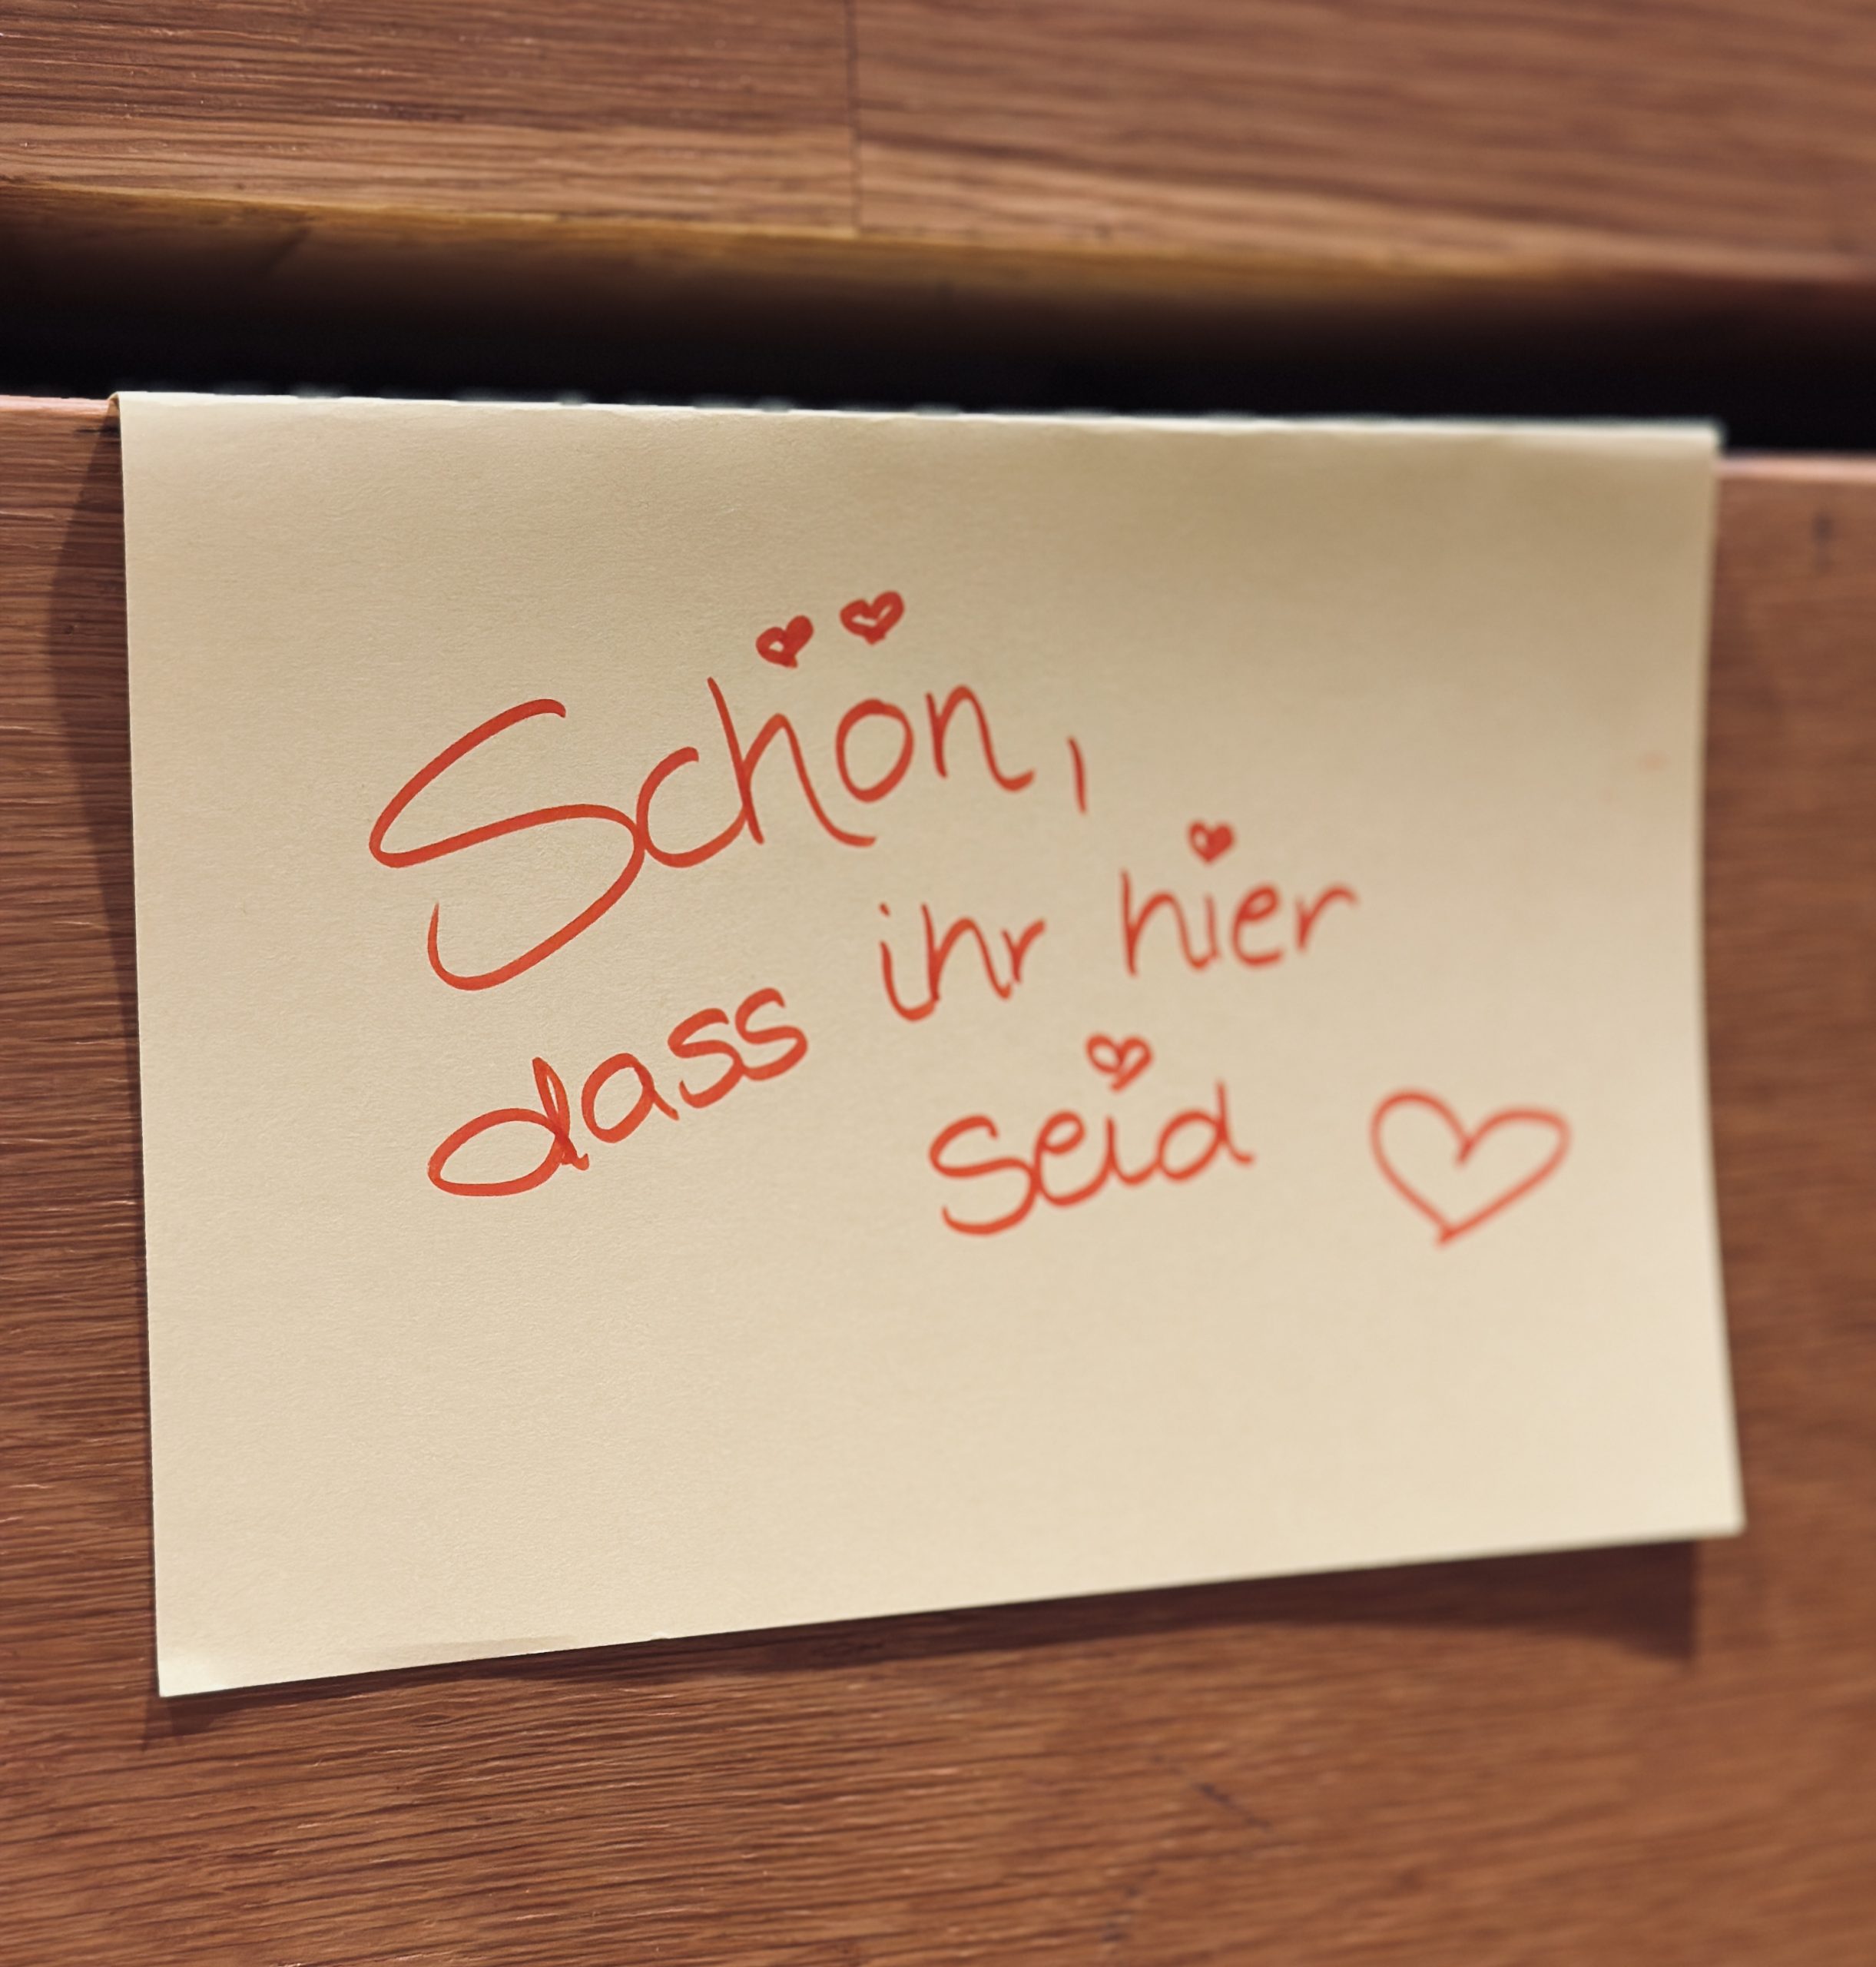 Schön,
dass ihr hier
seid